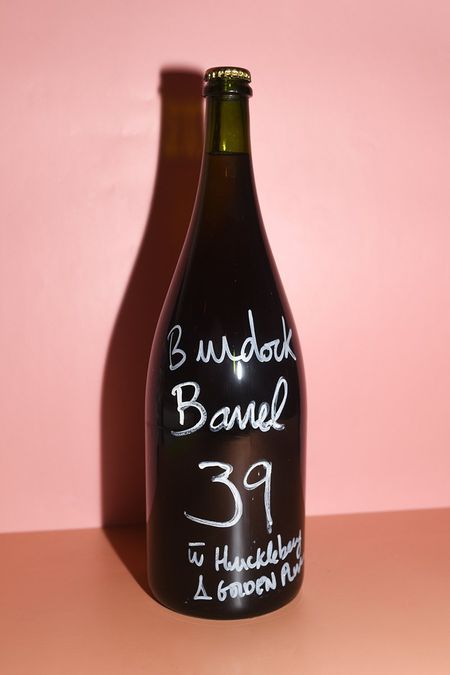 Burdock
Barrel
39
w Huckleberry
& GOLDEN Plum